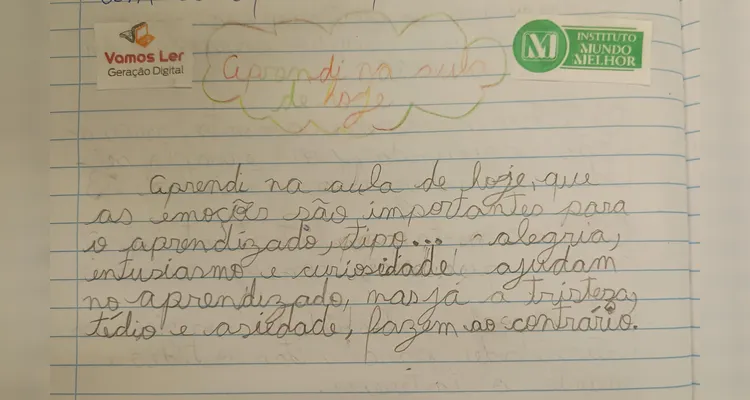 Vamos Ler
Geração Digital
INSTITUTO
MUNDO
MELHOR
Aprendi na aula
de hoje
Aprendi na aula de hoje, que
as emoções são importantes para
o aprendizado, tipo... alegria,
entusiasmo e curiosidade ajudam
no aprendizado, mas já a tristeza,
tédio e asiedade, fazem ao contrário.